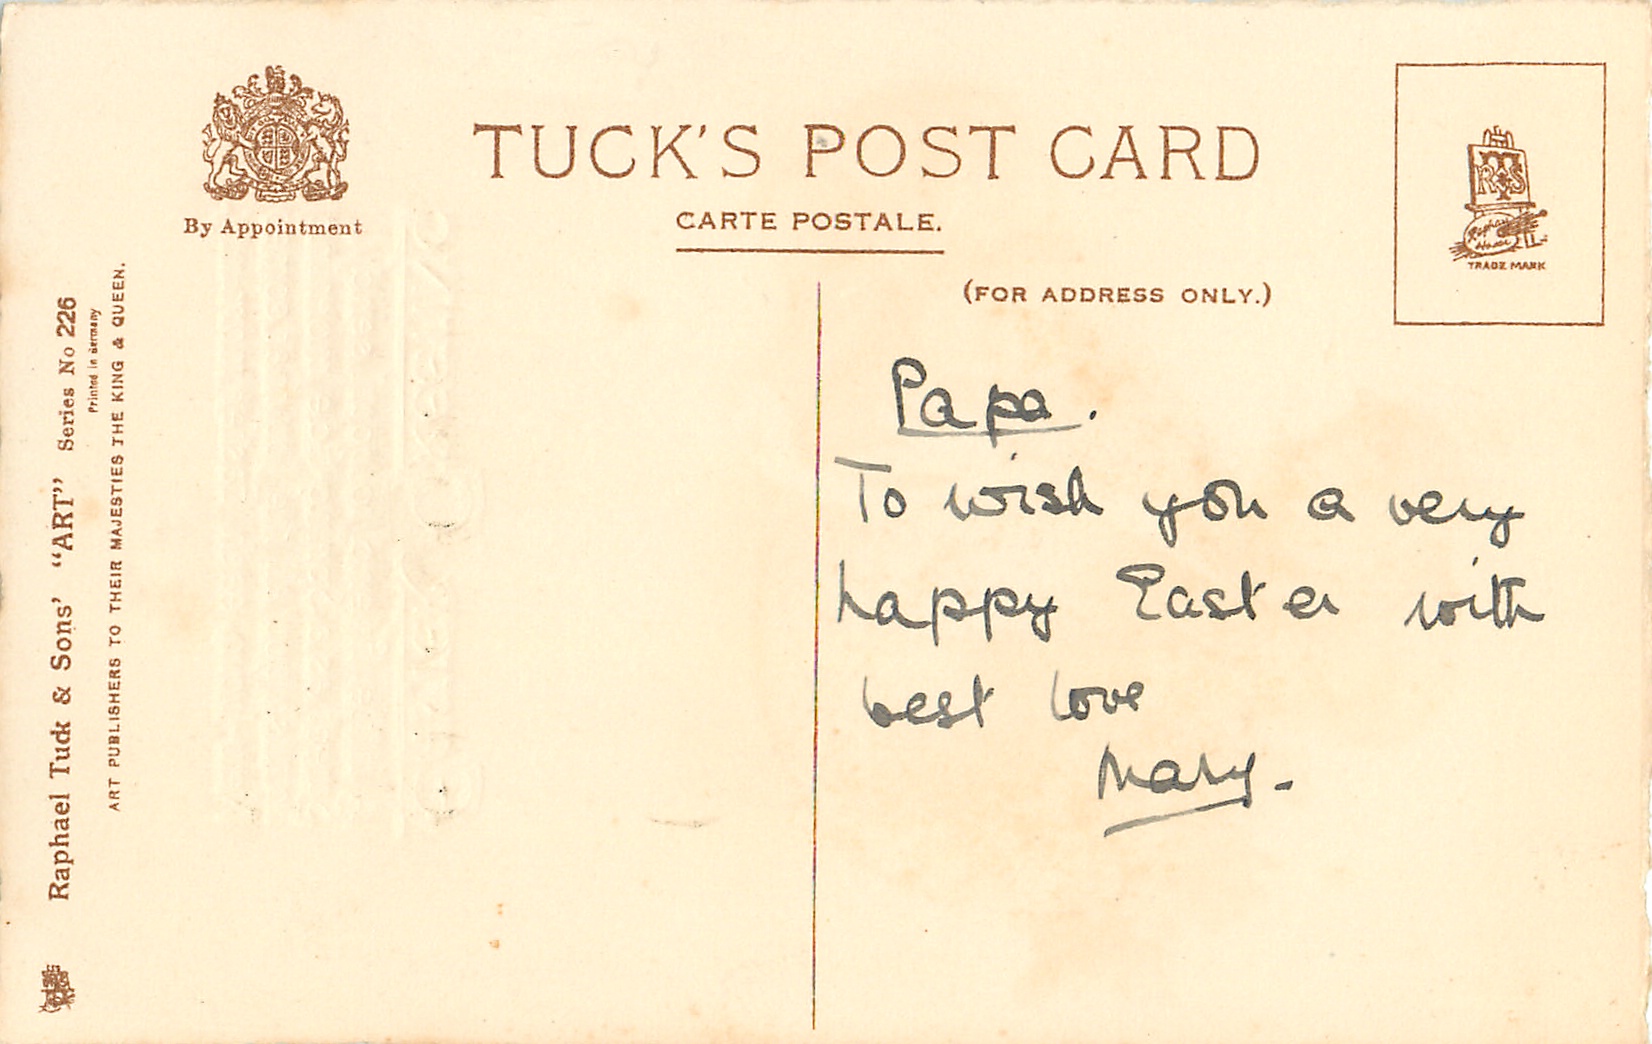 TUCK'S POST CARD
CARTE POSTALE.
(FOR ADDRESS ONLY.)
By Appointment
Raphael Tuck & Sons' "ART" Series No 226
Printed in Germany
ART PUBLISHERS TO THEIR MAJESTIES THE KING & QUEEN.
RTS
Raphael
House
TRADE MARK
Papa.
To wish you a very
happy Easter with
best love
Mary.